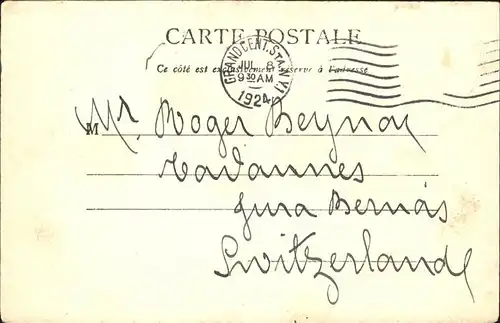 CARTE POSTALE
Ce côté est exclusivement réservé à l'adresse
GRAND CENT. STA. N.Y.
JUL 8
9 30 AM
1924
M Mr. Roger Beynon
Tavannes
Jura Bernás
Switzerland